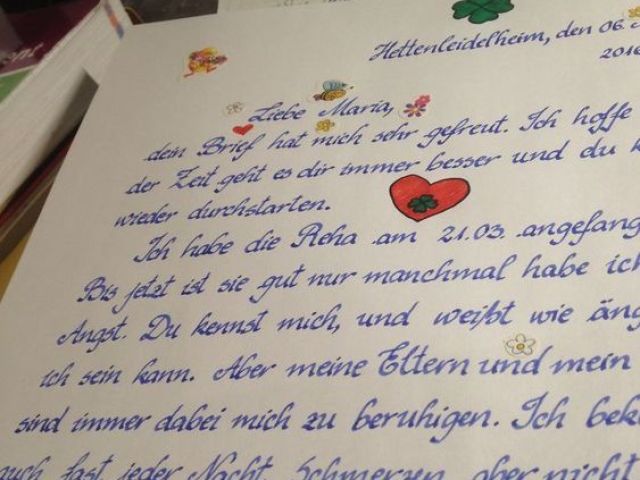 Hettenleidelheim, den 06.
2016
Liebe Maria,
dein Brief hat mich sehr gefreut. Ich hoffe
der Zeit geht es dir immer besser und du k
wieder durchstarten.
Ich habe die Reha am 21.03. angefang
Bis jetzt ist sie gut nur manchmal habe ich
Angst. Du kennst mich, und weißt wie äng
ich sein kann. Aber meine Eltern und mein
sind immer dabei mich zu beruhigen. Ich bek
auch fast jeder Nacht Schmerzen, aber nicht